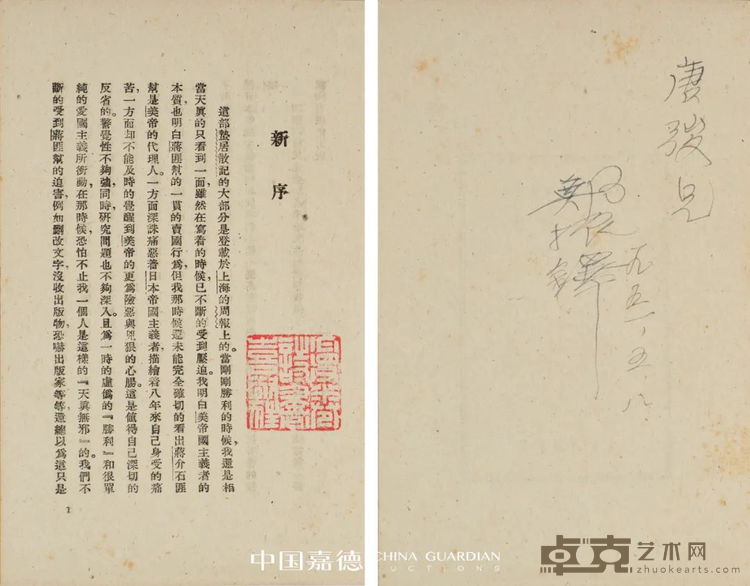 新序
這部蟄居散記的大部分是登載於上海的周報上的。當剛剛勝利的時候，我還是相
當天眞的只看到一面，雖然在寫着的時候，已不斷的受到壓迫。我明白美帝國主義者的
本質，也明白蔣匪幫的一貫的賣國行爲，但我那時候還未能完全確切的看出蔣介石匪
幫是美帝的代理人。一方面深誅痛惡着日本帝國主義者，描繪着八年來自己身受的痛
苦，一方面却不能及時的覺醒到美帝的更爲險惡與兇狠的心腸。這是値得自己深切的
反省的。警覺性不夠強，同時，硏究問題也不夠深入。且爲一時的虛僞的『勝利』和很單
純的愛國主義所衝動。在那時候，恐怕不止我一個人是這樣的『天眞無邪』的。我們不
斷的受到蔣匪幫的迫害，例如刪改文字，沒收出版物，恐嚇出版家等等，還總以爲這只是
1
唐弢兄
鄭振鐸
一九五一、五、八
中国嘉德
CHINA GUARDIAN
AUCTIONS
卓克艺术网
zhuokearts.com